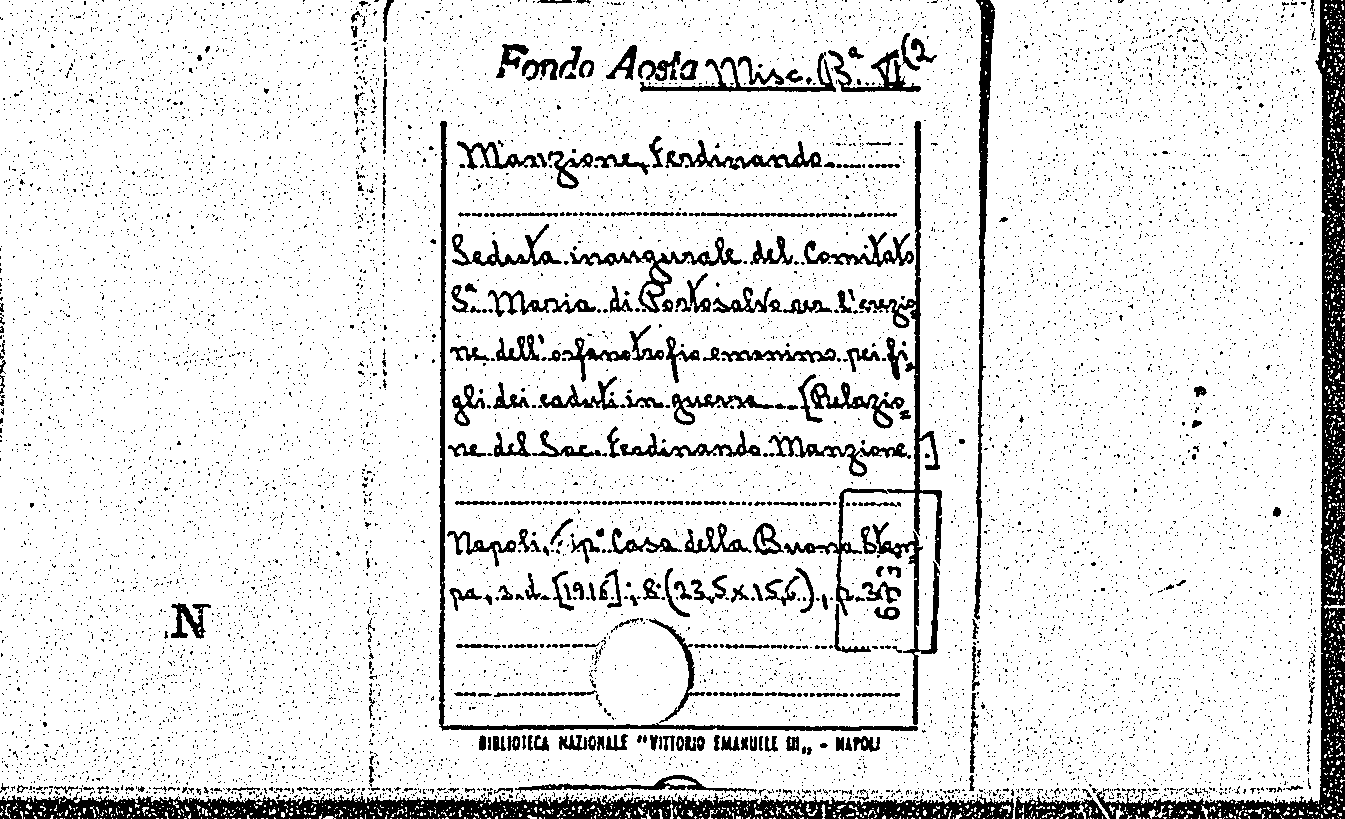 Fondo Aosta Misc. Bª. VI (2
Manzione, Ferdinando
Seduta inaugurale del Comitato
Sª. Maria di Portosalvo per l'erezio=
ne dell'orfanotrofio omonimo pei fi=
gli dei caduti in guerra [Relazio=
ne del Sac. Ferdinando Manzione.]
Napoli, Tipº Casa della Buona Stam=
pa, s.d. [1916]; 8° (23,5 x 15,6), p.
N
BIBLIOTECA NAZIONALE "VITTORIO EMANUELE III„ - NAPOLI